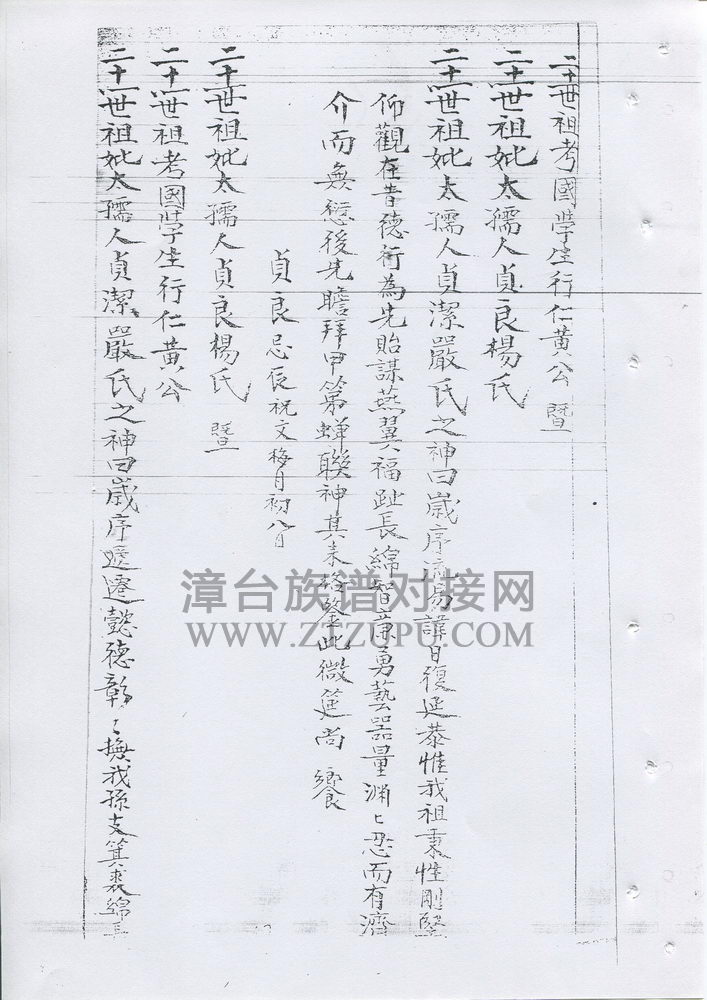 二十一世祖考國學生行仁黃公 暨
二十一世祖妣太孺人貞良楊氏
二十一世祖妣太孺人貞潔嚴氏之神曰歲序流易諱日復延恭惟我祖秉性剛堅
仰觀在昔德行為先貽謀燕翼福祉長綿智兼勇藝器量淵〻忍而有濟
介而無愆後先瞻拜甲第蟬聯神其來格鑒此微筵尚 饗
貞良忌辰祝文 梅月初八日
二十一世祖妣太孺人貞良楊氏 暨
二十一世祖考國學生行仁黃公
二十一世祖妣太孺人貞潔嚴氏之神曰歲序遞遷懿德彰〻撫我孫支箕裘綿長
漳台族谱对接网
WWW.ZTZUPU.COM